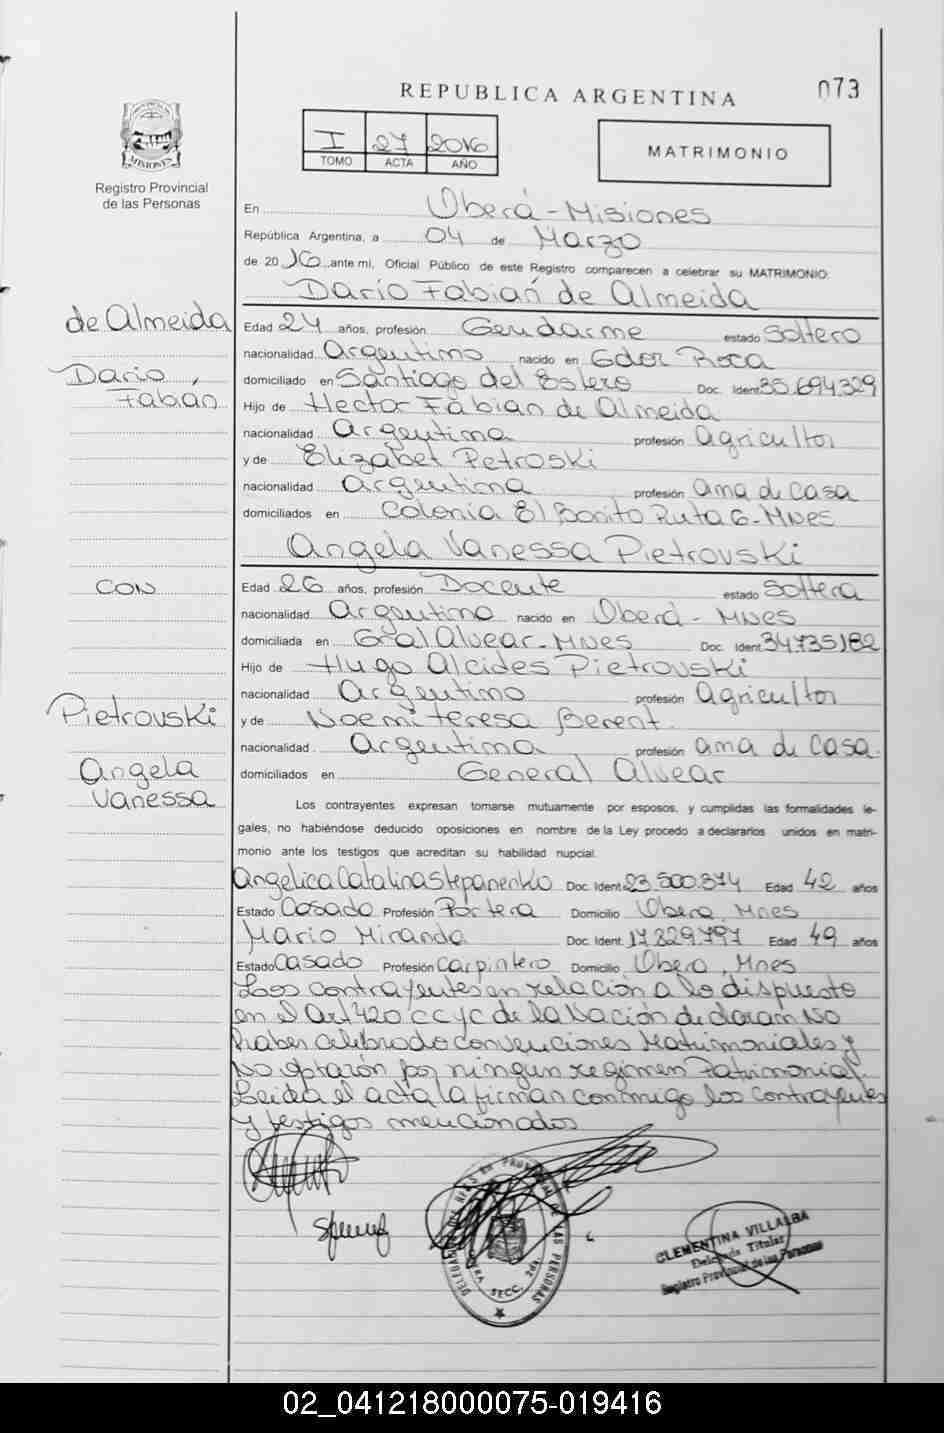 073
REPUBLICA ARGENTINA
I 27 2016
TOMO ACTA AÑO
MATRIMONIO
MISIONES
Registro Provincial
de las Personas
En Oberá - Misiones
República Argentina, a 04 de Marzo
de 2016 ante mí, Oficial Público de este Registro comparecen a celebrar su MATRIMONIO:
Darío Fabián de Almeida
de Almeida
Dario,
Fabián
Edad 24 años, profesión Gendarme estado Soltero
nacionalidad Argentino nacido en Gdor Roca
domiciliado en Santiago del Estero Doc. Ident 35.694.329
Hijo de Hector Fabian de Almeida
nacionalidad Argentina profesión agricultor
y de Elizabet Petroski
nacionalidad Argentina profesión ama de casa
domiciliados en Colonia El Bonito Ruta 6 - Mnes
Angela Vanessa Pietrovski
CON
Edad 26 años, profesión Docente estado Soltera
nacionalidad Argentina nacido en Oberá - Mnes
domiciliada en Gral Alvear - Mnes Doc. Ident 34735182
Hijo de Hugo Alcides Pietrovski
nacionalidad Argentino profesión Agricultor
Pietrovski
Angela
Vanessa
y de Noemi teresa Berent
nacionalidad Argentina profesión ama de casa.
domiciliados en General Alvear
Los contrayentes expresan tomarse mutuamente por esposos, y cumplidas las formalidades le-
gales, no habiéndose deducido oposiciones en nombre de la Ley procedo a declararlos unidos en matri-
monio ante los testigos que acreditan su habilidad nupcial.
Angelica Catalina Stepanenko Doc. Ident. 23.500.874 Edad 42 años
Estado Casado Profesión Portera Domicilio Obera, Mnes
Mario Miranda Doc. Ident. 17.829.797 Edad 49 años
Estado Casado Profesión Carpintero Domicilio Obera, Mnes
Los contrayentes en relación a lo dispuesto
en el Art 420 ccyc de la Nación declaran No
haber celebrado convenciones Matrimoniales y
No optaron por ningun regimen Patrimonial.
Leida el acta la firman conmigo los contrayentes
y testigos mencionados
SECC. 2da.
CLEMENTINA VILLALBA
Delegada Titular
Registro Provincial de las Personas
02_041218000075-019416